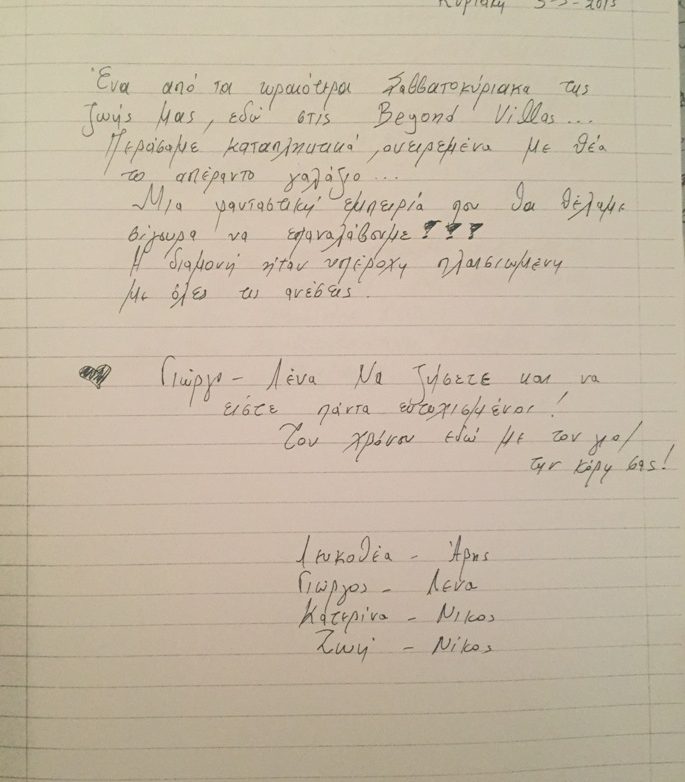 Κυριακή 3-5-2015
Ένα από τα ωραιότερα Σαββατοκύριακα της
ζωής μας, εδώ στις Beyond Villas...
Περάσαμε καταπληκτικά, ονειρεμένα με θέα
το απέραντο γαλάζιο...
Μια φανταστική εμπειρία που θα θέλαμε
σίγουρα να επαναλάβουμε!!!
Η διαμονή ήταν υπέροχη πλαισιωμένη
με όλες τις ανέσεις.
Γιώργο - Λένα Να ζήσετε και να
είστε πάντα ευτυχισμένοι!
Του χρόνου εδώ με τον γιο/
την κόρη σας!
Λευκοθέα - Άρης
Γιώργος - Λενα
Κατερίνα - Νικος
Ζωή - Νίκος